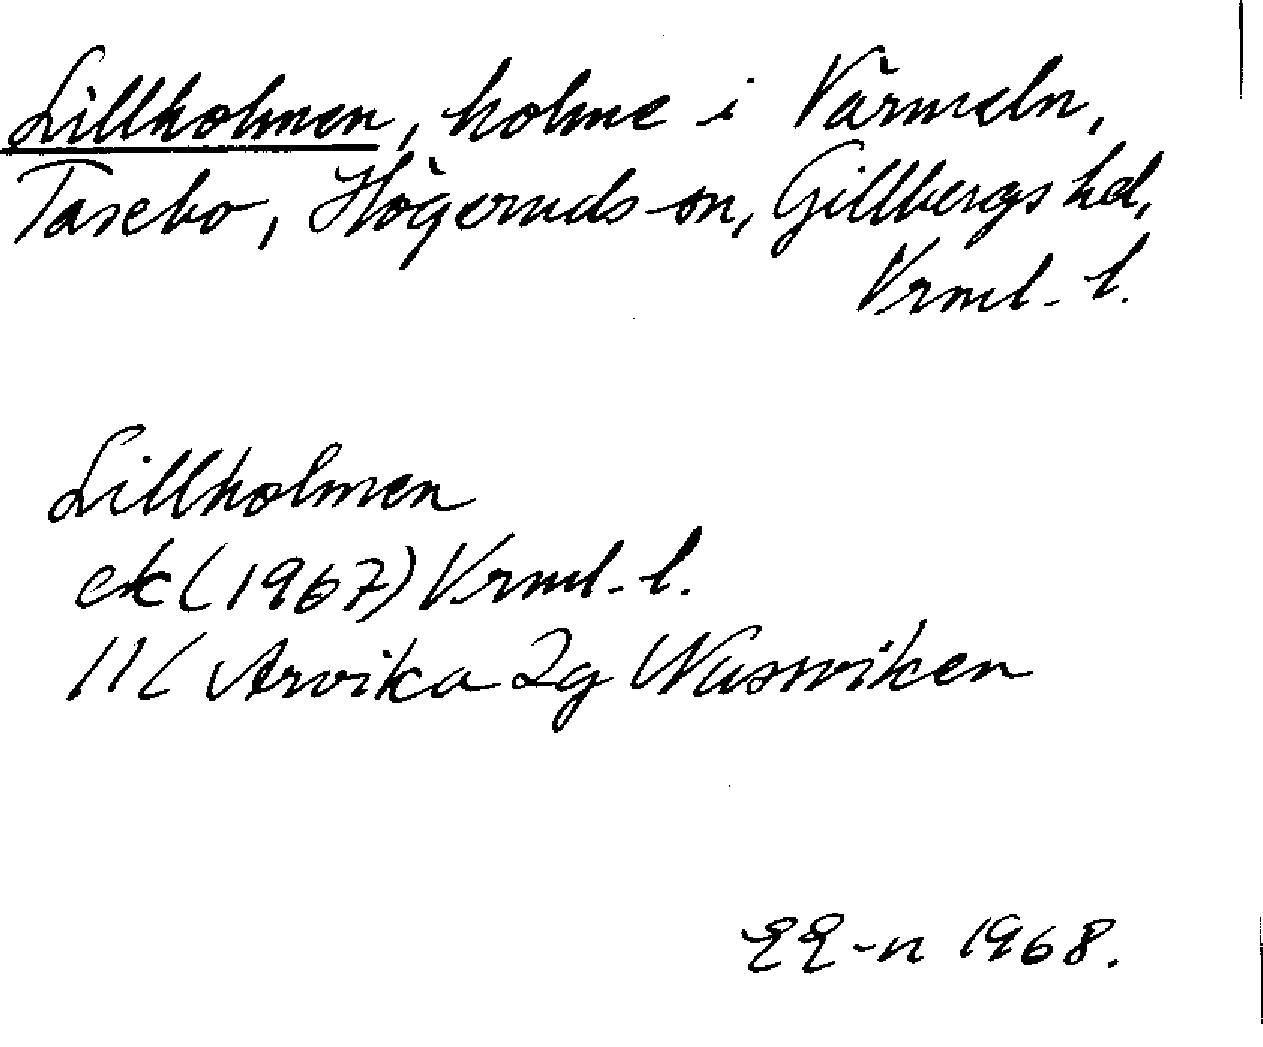 Lillholmen, holme i Värmeln,
Tasebo, Högeruds sn, Gillbergs hd,
Vrml. l.
Lillholmen
ek (1967) Vrml. l.
11C Arvika 2g Nusviken
EE-n 1968.